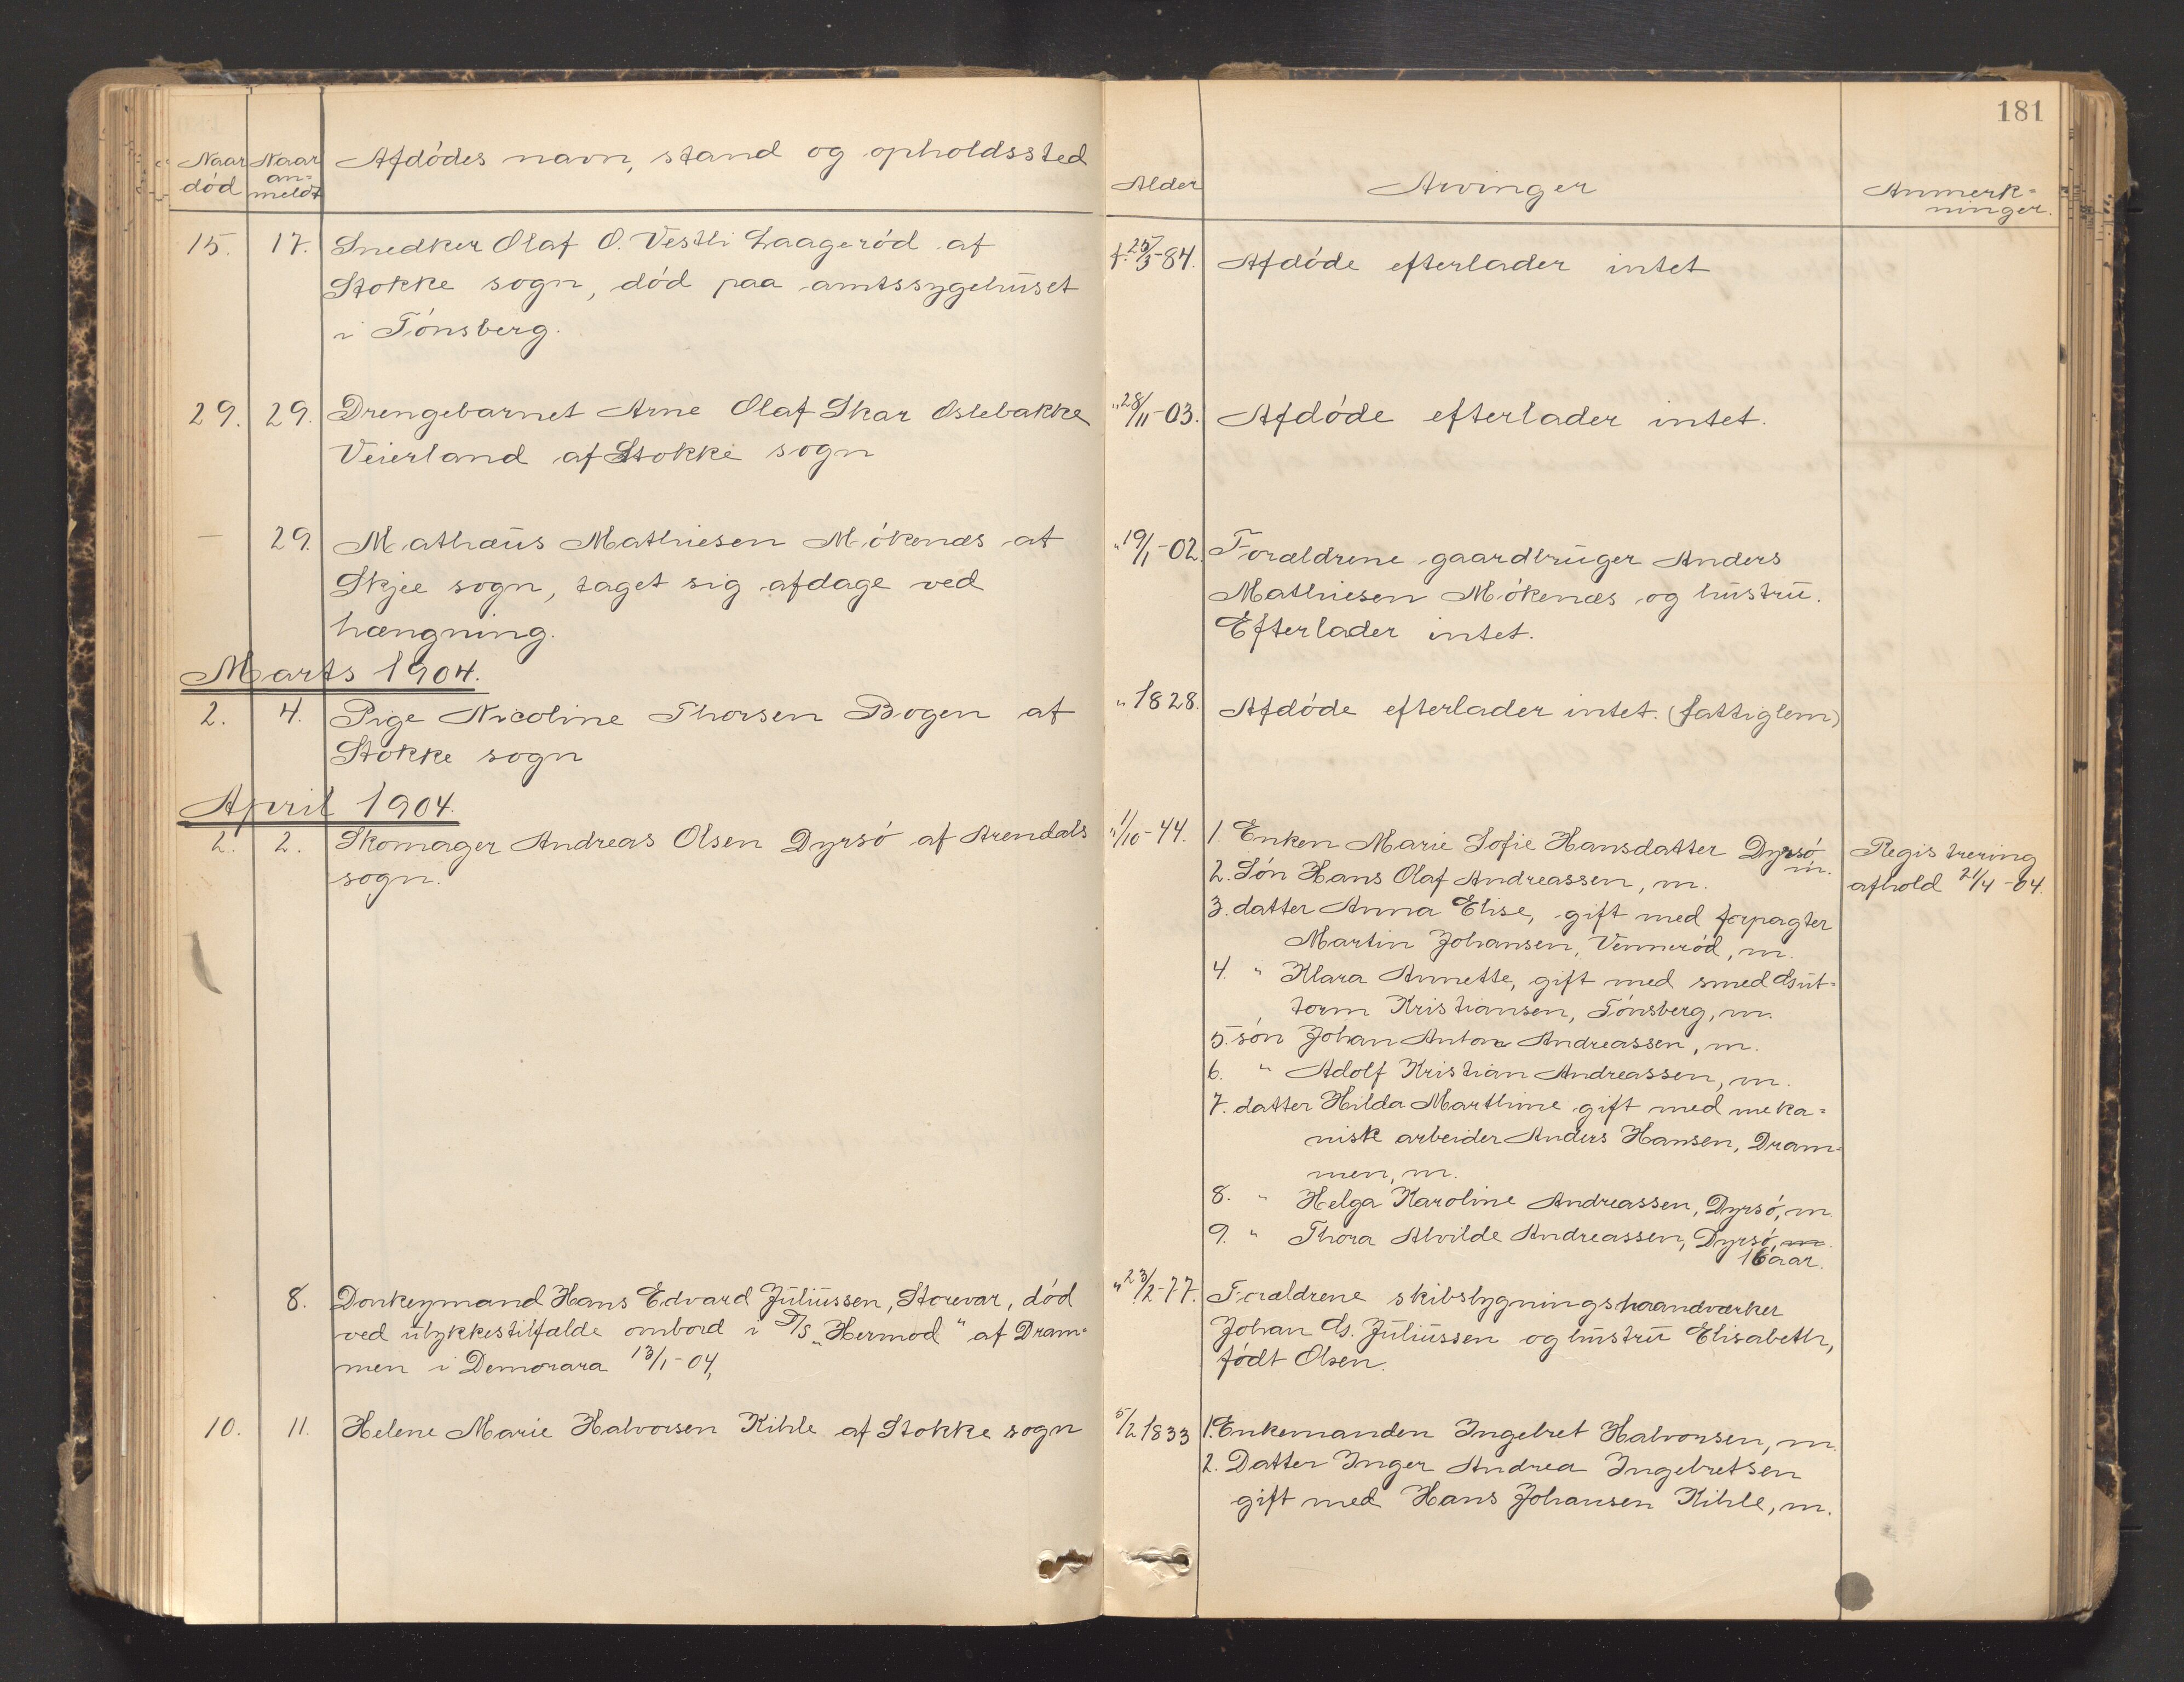 181
Naar død
Naar an=meldt
Afdødes navn, stand og opholdssted
Alder
Arvinger
Anmerk=
ninger.
15. 17. Snedker Olaf O. Vestli Laagerød af
Stokke sogn, død paa amtssygehuset
i Tønsberg.
f. 25/3-84. Afdøde efterlader intet
29. 29. Drengebarnet Arne Olaf Skar Oslebakke
Veierland af Stokke sogn
" 28/11-03. Afdøde efterlader intet.
— 29. Mathæus Mathiesen Møkenæs af
Skjee sogn, taget sig afdage ved
hængning.
" 19/1-02. Forældrene gaardbruger Anders
Mathiesen Møkenæs og hustru.
Efterlader intet.
Marts 1904.
2. 4. Pige Nicoline Thorsen Bogen af
Stokke sogn
" 1828. Afdøde efterlader intet. (fattiglem)
April 1904.
2. 2. Skomager Andreas Olsen Dyrsø af Arendals
sogn.
" 1/10-44. 1. Enken Marie Sofie Hansdatter Dyrsø
m.
2. Søn Hans Olaf Andreassen, m.
3. datter Anna Elise, gift med forpagter
Martin Johansen, Vennerød, m.
4. " Klara Annette, gift med smed Gut=
torm Kristiansen, Tønsberg, m.
5. søn Johan Anton Andreassen, m.
6. " Adolf Kristian Andreassen, m.
7. datter Hilda Marthine gift med meka=
nisk arbeider Anders Hansen, Dram=
men, m.
8. " Helga Karoline Andreassen, Dyrsø, m.
9. " Thora Alvilde Andreassen, Dyrsø, m.
16 aar.
Registrering
afhold 21/4-04.
8. Donkeymand Hans Edvard Juliussen, Storevar, død
ved ulykkestilfælde ombord i D/S „Hermod" af Dram=
men i Demorara 13/1-04,
" 23/2-77. Forældrene skibsbygningshaandværker
Johan G. Juliussen og hustru Elisabeth,
født Olsen.
10. 11. Helene Marie Halvorsen Kihle af Stokke sogn
5/2 1833 1. Enkemanden Ingebret Halvorsen, m.
2. Datter Inger Andrea Ingebretsen
gift med Hans Johansen Kihle, m.